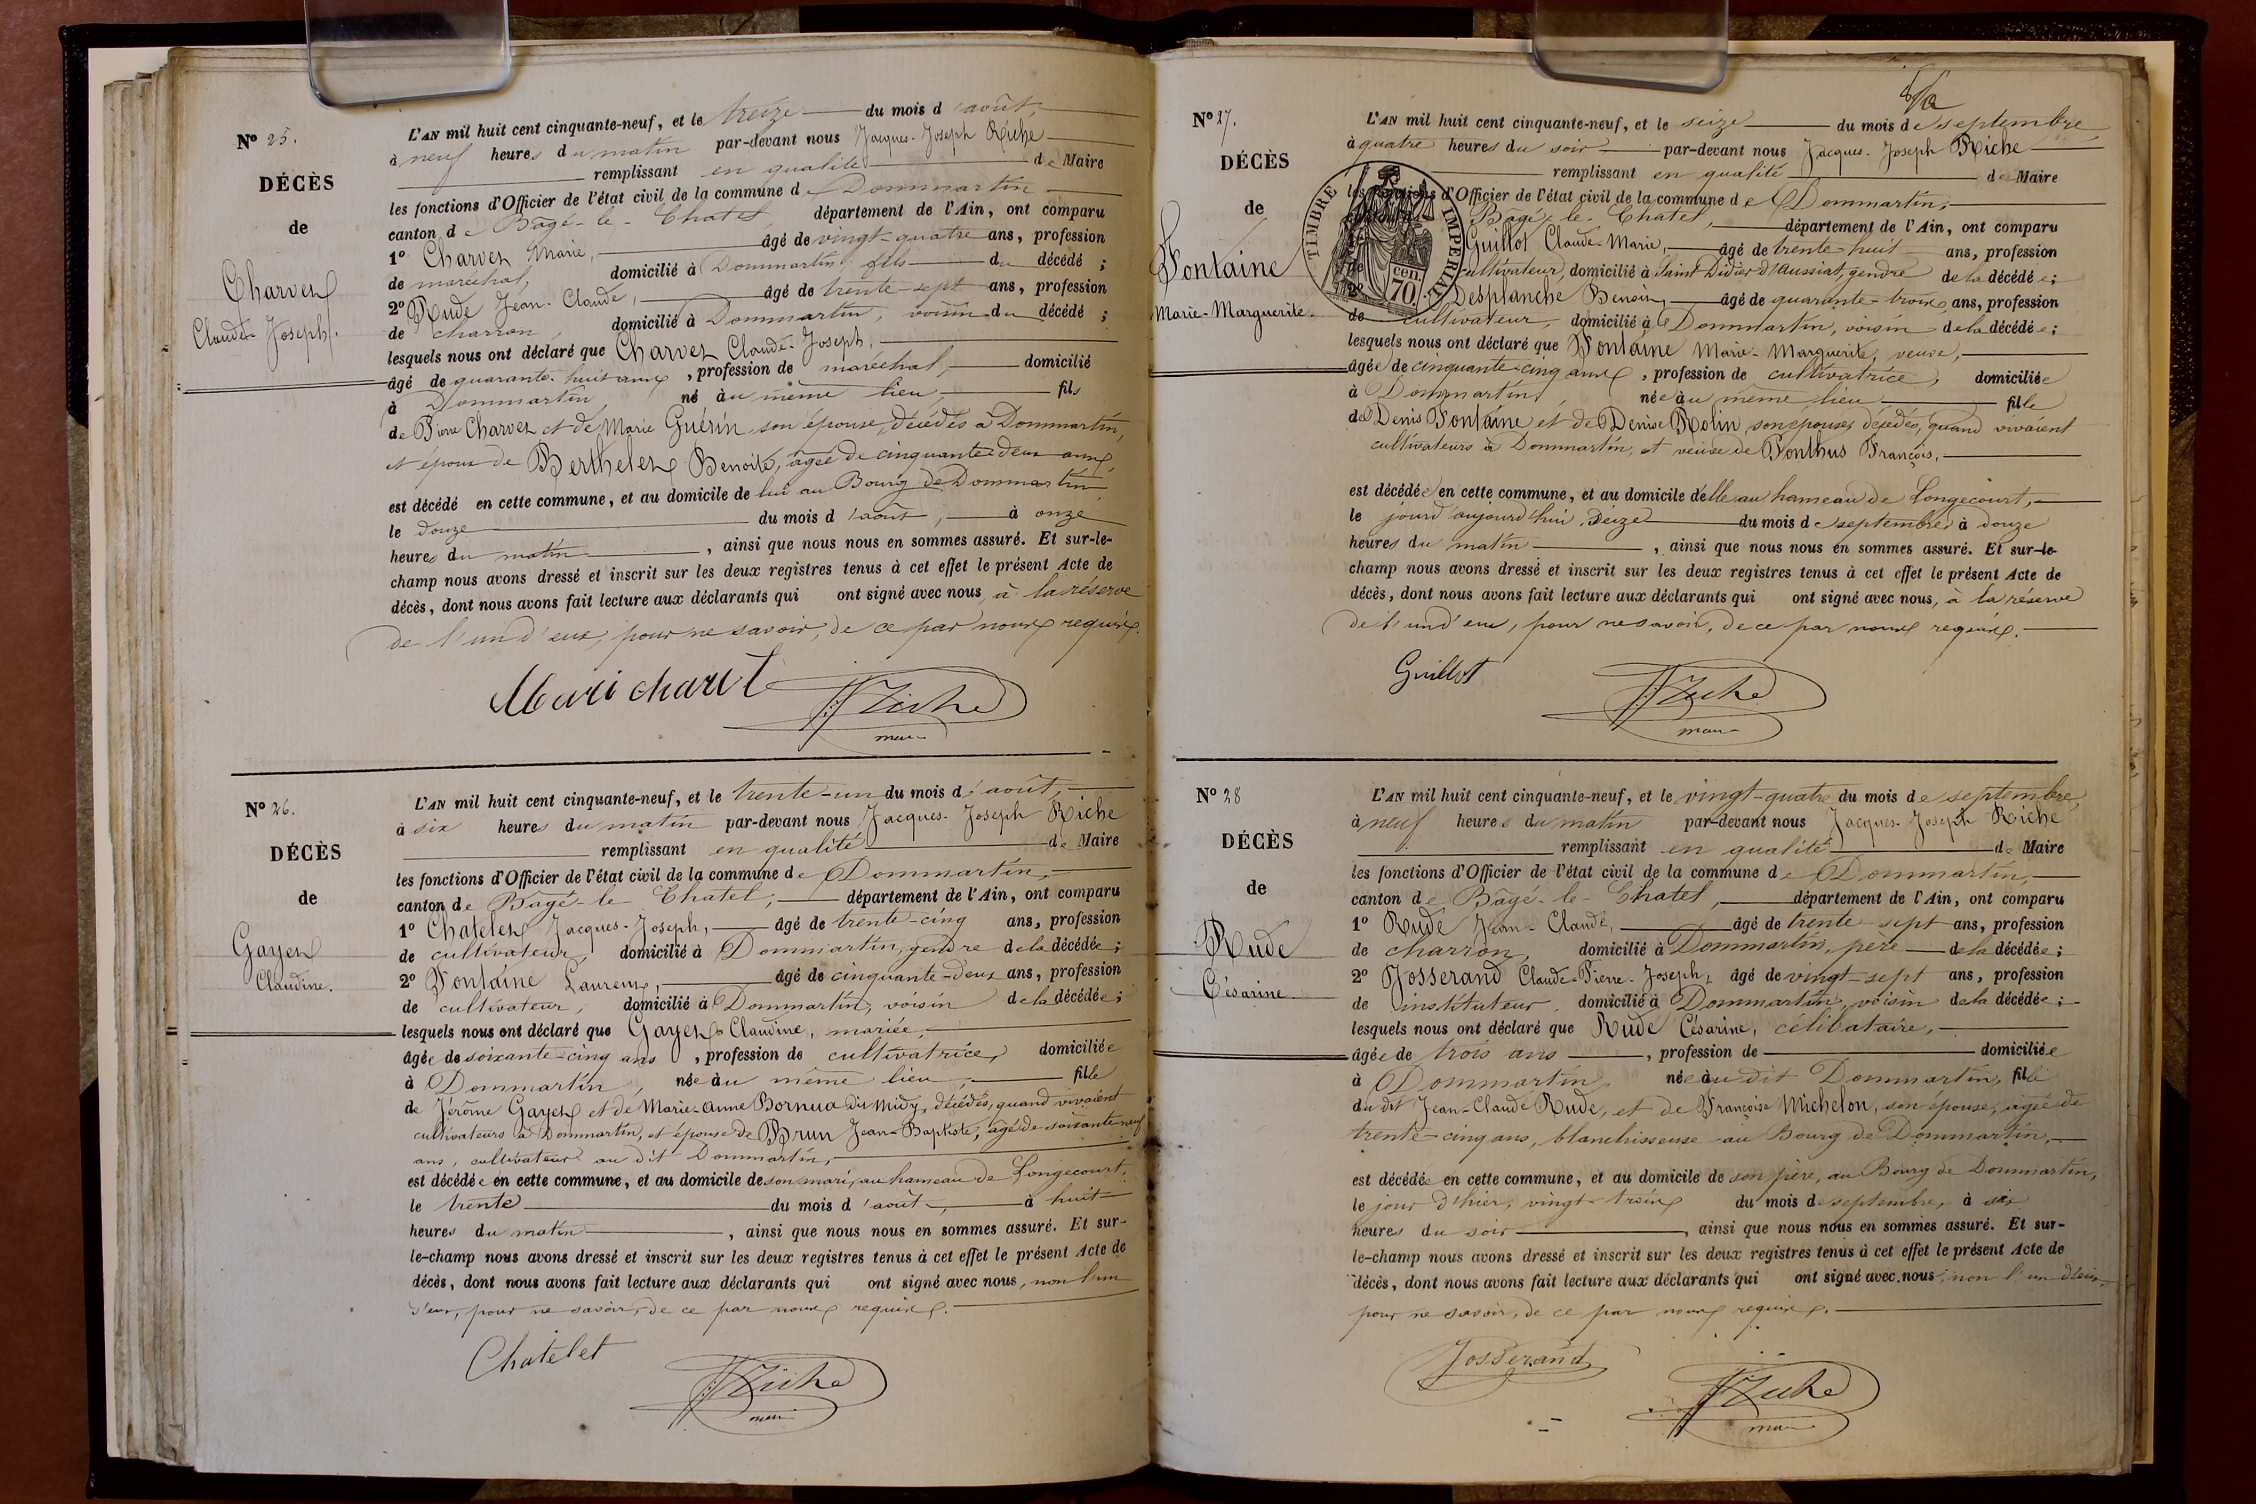 N° 25.
DÉCÈS
de
Charvet
Claude-Joseph.
L'AN mil huit cent cinquante-neuf, et le treize du mois d'août,
à neuf heures du matin par-devant nous Jacques-Joseph Riche
remplissant en qualité de Maire
les fonctions d'Officier de l'état civil de la commune de Dommartin
canton de Bâgé-le-Chatel département de l'Ain, ont comparu
1° Charvet Marie, âgé de vingt-quatre ans, profession
de maréchal, domicilié à Dommartin fils du décédé;
2° Rude Jean-Claude, âgé de trente-sept ans, profession
de charron domicilié à Dommartin, voisin du décédé;
lesquels nous ont déclaré que Charvet Claude-Joseph,
âgé de quarante-huit ans, profession de maréchal, domicilié
à Dommartin né au même lieu fils
de Pierre Charvet et de Marie Guérin son épouse, décédés à Dommartin,
et époux de Berthelet Benoite, âgée de cinquante-deux ans,
est décédé en cette commune, et au domicile de lui au Bourg de Dommartin
le douze du mois d'août, à onze
heures du matin, ainsi que nous nous en sommes assuré. Et sur-le-
champ nous avons dressé et inscrit sur les deux registres tenus à cet effet le présent Acte de
décès, dont nous avons fait lecture aux déclarants qui ont signé avec nous, à la réserve
de l'un d'eux, pour ne savoir, de ce par nous requis.
Mari charvet
JJ Riche
maire
N° 26.
DÉCÈS
de
Gayet
Claudine.
L'AN mil huit cent cinquante-neuf, et le trente-un du mois d'août,
à six heures du matin par-devant nous Jacques-Joseph Riche
remplissant en qualité de Maire
les fonctions d'Officier de l'état civil de la commune de Dommartin,
canton de Bâgé-le-Chatel, département de l'Ain, ont comparu
1° Chatelet Jacques-Joseph, âgé de trente-cinq ans, profession
de cultivateur, domicilié à Dommartin, gendre de la décédée;
2° Fontaine Laurent, âgé de cinquante-deux ans, profession
de cultivateur, domicilié à Dommartin, voisin de la décédée;
lesquels nous ont déclaré que Gayet Claudine, mariée,
âgée de soixante-cinq ans, profession de cultivatrice, domiciliée
à Dommartin, née au même lieu, fille
de Jérôme Gayet et de Marie-Anne Bornua dit Midy, décédés, quand vivaient
cultivateurs à Dommartin, et épouse de Brun Jean-Baptiste, âgé de soixante-neuf
ans, cultivateur au dit Dommartin,
est décédée en cette commune, et au domicile de son mari, au hameau de Longecourt,
le trente du mois d'août, à huit
heures du matin, ainsi que nous nous en sommes assuré. Et sur-
le-champ nous avons dressé et inscrit sur les deux registres tenus à cet effet le présent Acte de
décès, dont nous avons fait lecture aux déclarants qui ont signé avec nous, non l'un
d'eux, pour ne savoir, de ce par nous requis.
Chatelet
JJ Riche
maire
N° 27.
DÉCÈS
de
Fontaine
Marie-Marguerite.
TIMBRE IMPERIAL
70 cen.
L'AN mil huit cent cinquante-neuf, et le seize du mois de septembre,
à quatre heures du soir par-devant nous Jacques-Joseph Riche
remplissant en qualité de Maire
les fonctions d'Officier de l'état civil de la commune de Dommartin,
Bâgé-le-Chatel, département de l'Ain, ont comparu
Guillot Claude-Marie, âgé de trente-huit ans, profession
cultivateur, domicilié à Saint Didier d'Aussiat, gendre de la décédée;
2° Desplanche Benoit, âgé de quarante-trois ans, profession
de cultivateur, domicilié à Dommartin, voisin de la décédée;
lesquels nous ont déclaré que Fontaine Marie-Marguerite, veuve,
âgée de cinquante-cinq ans, profession de cultivatrice, domiciliée
à Dommartin, née au même lieu fille
de Denis Fontaine et de Denise Rolin, son épouse, décédés, quand vivaient
cultivateurs à Dommartin, et veuve de Ponthus François,
est décédée en cette commune, et au domicile d'elle au hameau de Longecourt,
le jour d'aujourd'hui seize du mois de septembre à douze
heures du matin, ainsi que nous nous en sommes assuré. Et sur-le-
champ nous avons dressé et inscrit sur les deux registres tenus à cet effet le présent Acte de
décès, dont nous avons fait lecture aux déclarants qui ont signé avec nous, à la réserve
de l'un d'eux, pour ne savoir, de ce par nous requis.
Guillot
JJ Riche
maire
N° 28
DÉCÈS
de
Rude
Césarine
L'AN mil huit cent cinquante-neuf, et le vingt-quatre du mois de septembre,
à neuf heures du matin par-devant nous Jacques-Joseph Riche
remplissant en qualité de Maire
les fonctions d'Officier de l'état civil de la commune de Dommartin,
canton de Bâgé-le-Chatel, département de l'Ain, ont comparu
1° Rude Jean-Claude, âgé de trente-sept ans, profession
de charron, domicilié à Dommartin, père de la décédée;
2° Josserand Claude-Pierre-Joseph, âgé de vingt-sept ans, profession
de instituteur, domicilié à Dommartin, voisin de la décédée;
lesquels nous ont déclaré que Rude Césarine, célibataire,
âgée de trois ans, profession de domiciliée
à Dommartin, née au dit Dommartin, fille
du dit Jean-Claude Rude, et de Françoise Michelon, son épouse, âgée de
trente-cinq ans, blanchisseuse au Bourg de Dommartin,
est décédée en cette commune, et au domicile de son père, au Bourg de Dommartin,
le jour d'hier, vingt-trois du mois de septembre, à six
heures du soir, ainsi que nous nous en sommes assuré. Et sur-
le-champ nous avons dressé et inscrit sur les deux registres tenus à cet effet le présent Acte de
décès, dont nous avons fait lecture aux déclarants qui ont signé avec nous, non l'un d'eux,
pour ne savoir, de ce par nous requis.
Josserand
JJ Riche
maire